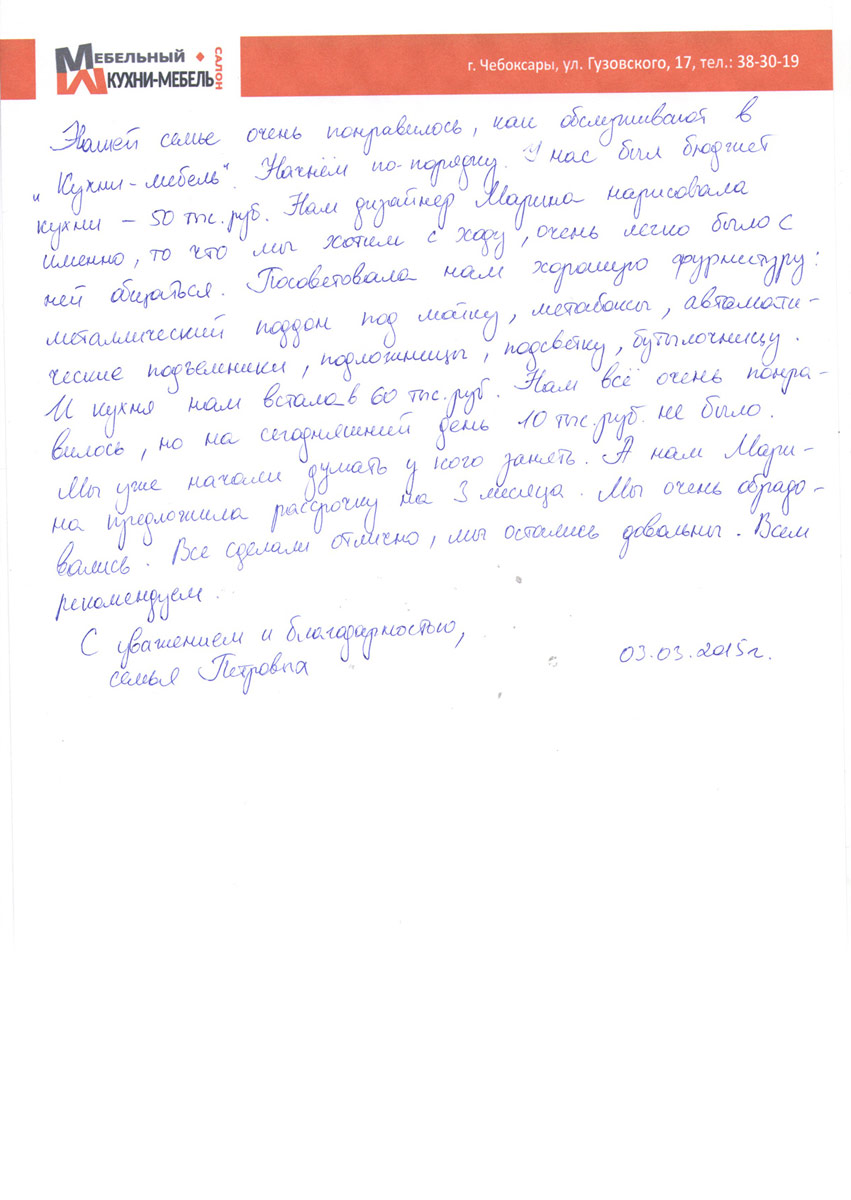 МЕБЕЛЬНЫЙ
КУХНИ-МЕБЕЛЬ
САЛОН
г. Чебоксары, ул. Гузовского, 17, тел.: 38-30-19
Нашей семье очень понравилось, как обслуживают в
„Кухни-мебель“. Начнём по-порядку. У нас был бюджет
кухни – 50 тыс. руб. Нам дизайнер Марина нарисовала
именно, то что мы хотим с ходу, очень легко было с
ней общаться. Посоветовала нам хорошую фурнитуру:
металлический поддон под мойку, метабоксы, автомати-
ческие подъемники, подложницы, подсветку, бутылочницу.
И кухня нам встала в 60 тыс. руб. Нам всё очень понра-
вилось, но на сегодняшний день 10 тыс. руб. не было.
Мы уже начали думать у кого занять. А нам Мари-
на предложила рассрочку на 3 месяца. Мы очень обрадо-
вались. Все сделали отлично, мы остались довольны. Всем
рекомендуем.
С уважением и благодарностью,
семья Петровых
03.03.2015г.